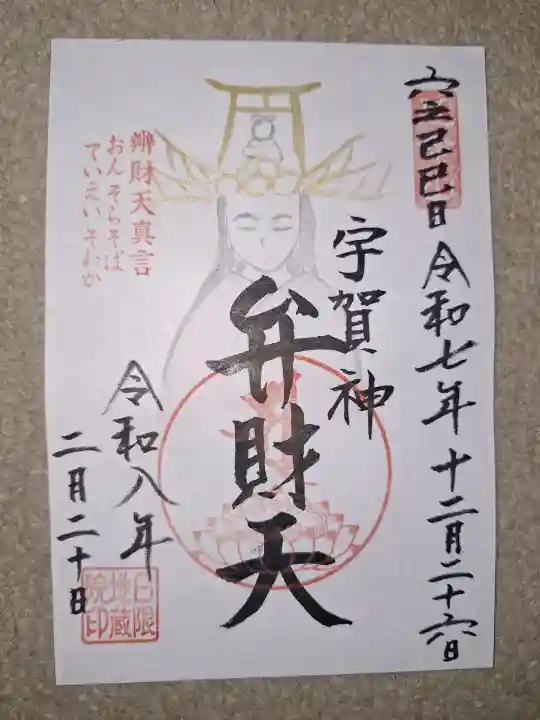 六士己巳日 令和七年 十二月二十六日
宇賀神
弁財天
辨財天真言
おん そらそば
ていえい そわか
令和八年
二月二十日
日限
地蔵
院印